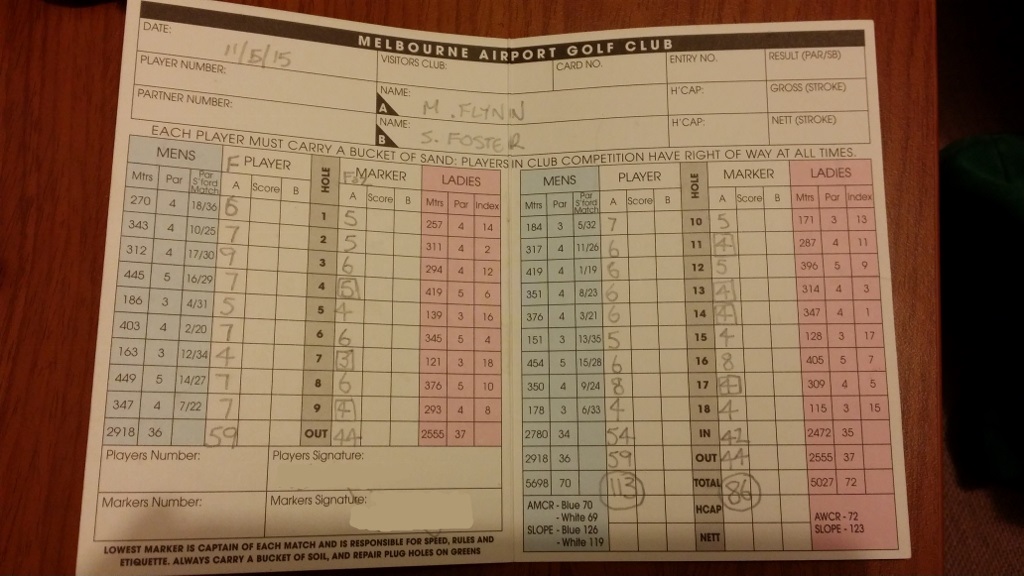 MELBOURNE AIRPORT GOLF CLUB
DATE: 11/5/15 VISITORS CLUB: CARD NO. ENTRY NO. RESULT (PAR/SB)
PLAYER NUMBER: NAME: A M. FLYNN H'CAP: GROSS (STROKE)
PARTNER NUMBER: NAME: B S. FOSTER H'CAP: NETT (STROKE)
EACH PLAYER MUST CARRY A BUCKET OF SAND: PLAYERS IN CLUB COMPETITION HAVE RIGHT OF WAY AT ALL TIMES.
MENS F PLAYER HOLE MARKER LADIES
Mtrs Par Par S'ford Match A Score B A Score B Mtrs Par Index
270 4 18/36 6 1 5 257 4 14
343 4 10/25 7 2 5 311 4 2
312 4 17/30 9 3 6 294 4 12
445 5 16/29 7 4 5 419 5 6
186 3 4/31 5 5 4 139 3 16
403 4 2/20 7 6 6 345 5 4
163 3 12/34 4 7 3 121 3 18
449 5 14/27 7 8 6 376 5 10
347 4 7/22 7 9 4 293 4 8
2918 36 59 OUT 44 2555 37
Players Number: Players Signature:
Markers Number: Markers Signature:
LOWEST MARKER IS CAPTAIN OF EACH MATCH AND IS RESPONSIBLE FOR SPEED, RULES AND
ETIQUETTE. ALWAYS CARRY A BUCKET OF SOIL, AND REPAIR PLUG HOLES ON GREENS
MENS PLAYER HOLE MARKER LADIES
Mtrs Par Par S'ford Match A Score B A Score B Mtrs Par Index
184 3 5/32 7 10 5 171 3 13
317 4 11/26 6 11 4 287 4 11
419 4 1/19 6 12 5 396 5 9
351 4 8/23 6 13 4 314 4 3
376 4 3/21 6 14 4 347 4 1
151 3 13/35 5 15 4 128 3 17
454 5 15/28 6 16 8 405 5 7
350 4 9/24 8 17 4 309 4 5
178 3 6/33 4 18 4 115 3 15
2780 34 54 IN 42 2472 35
2918 36 59 OUT 44 2555 37
5698 70 113 TOTAL 86 5027 72
AMCR - Blue 70 HCAP AWCR - 72
- White 69 SLOPE - 123
SLOPE - Blue 126 NETT
- White 119